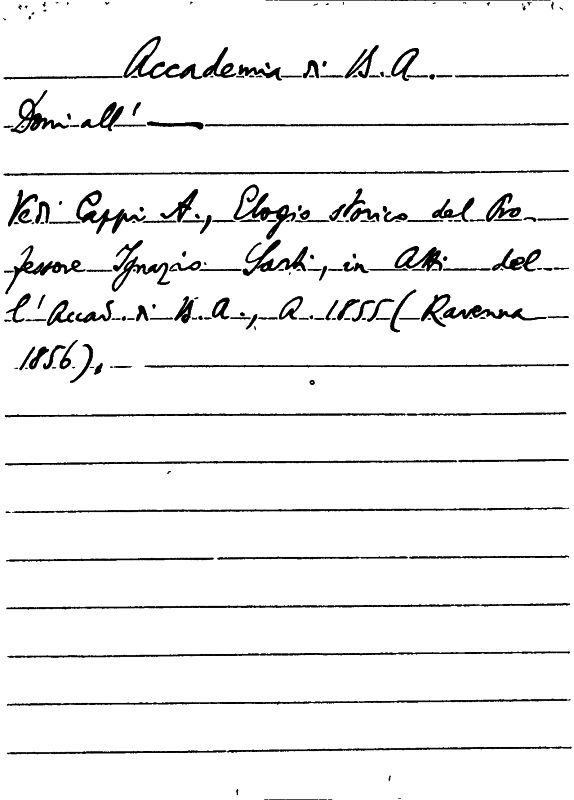 Accademia di B. A.
Doni all' —
Vedi Cappi A., Elogio storico del Pro-
fessore Ignazio Sarti, in Atti del
l'Accad. di B. A., A. 1855 (Ravenna
1856). —